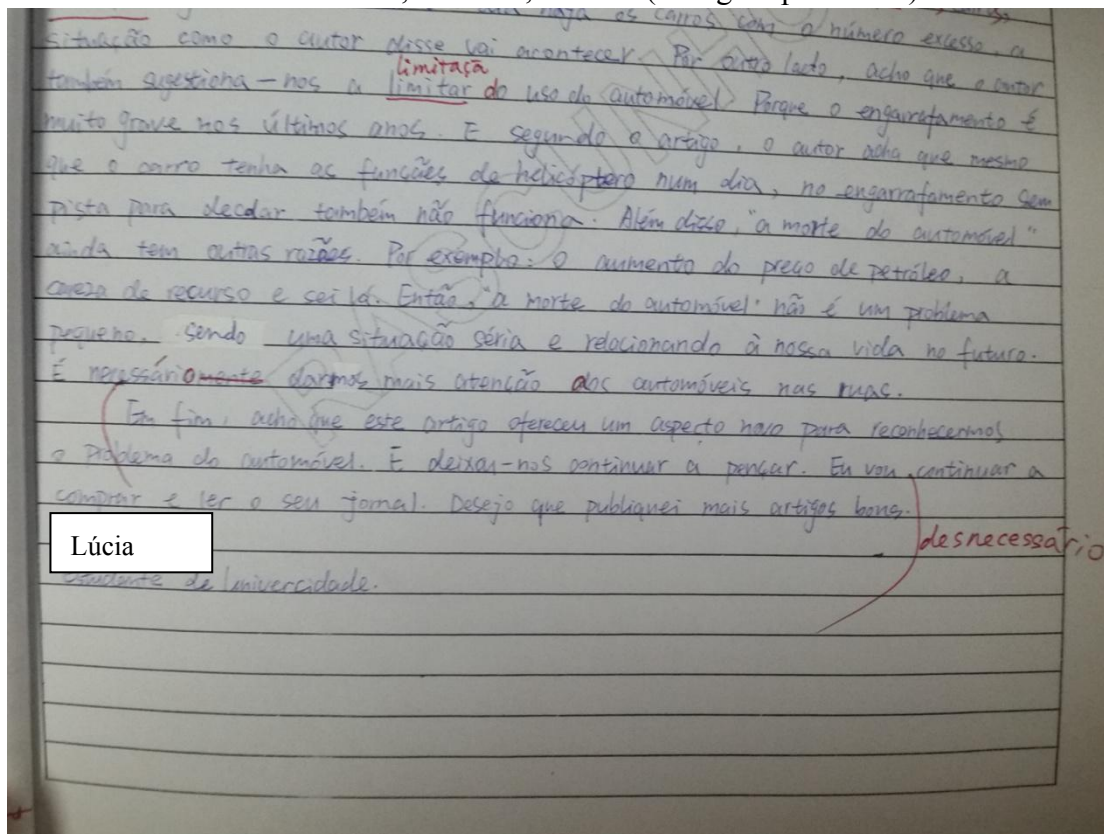 os carros com o número excesso, a
situação como o autor disse vai acontecer. Por outro lado, acho que o autor
limitaçã
também sugestiona-nos a limitar do uso do automóvel. Porque o engarrafamento é
muito grave nos últimos anos. E segundo o artigo, o autor acha que mesmo
que o carro tenha as funções de helicóptero num dia, no engarrafamento sem
pista para decolar também não funciona. Além disso, "a morte do automóvel"
ainda tem outras razões. Por exemplo: o aumento do preço de petróleo, a
de recurso e sei lá. Então, "a morte do automóvel" não é um problema
pequeno. sendo uma situação séria e relacionando à nossa vida no futuro.
É necessáriomente darmos mais atenção aos automóveis nas ruas.
Em fim, acho que este artigo ofereceu um aspecto novo para reconhecermos
o problema do automóvel. E deixou-nos continuar a pensar. Eu vou continuar a
comprar e ler o seu jornal. Desejo que publiquei mais artigos bons.
desnecessário
Lúcia
estudante de univercidade.
RASCUNHO